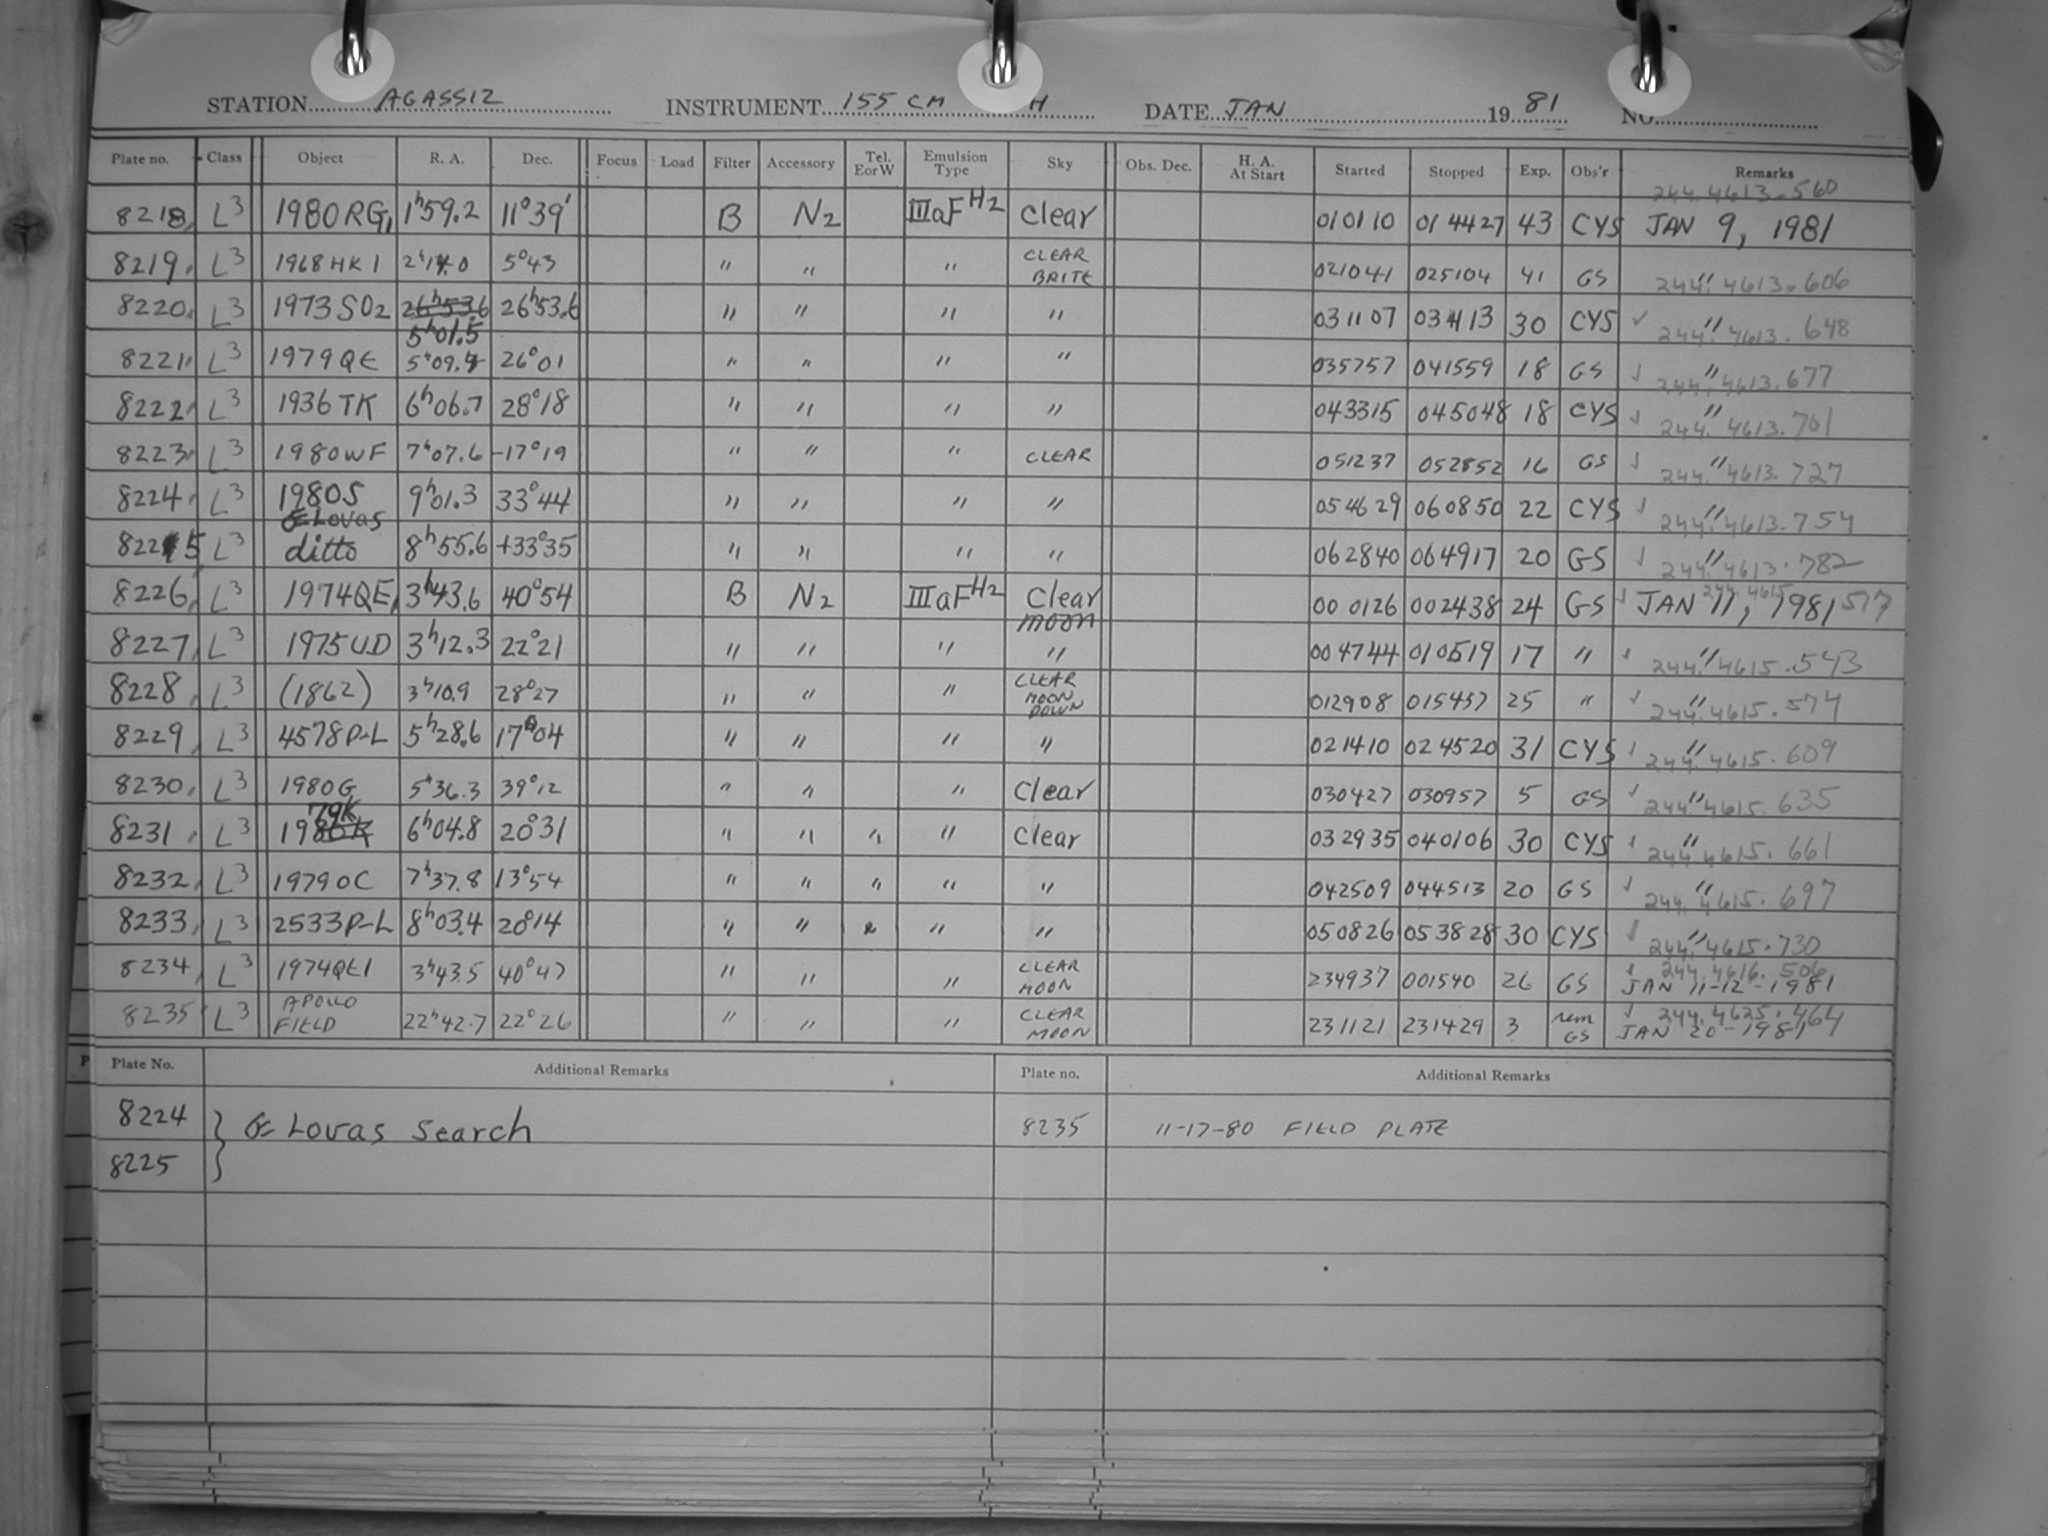 STATION AGASSIZ INSTRUMENT 155 CM H DATE JAN 19 81 NO.
Plate no. Class Object R. A. Dec. Focus Load Filter Accessory Tel. E or W Emulsion Type Sky Obs. Dec. H. A. At Start Started Stopped Exp. Obs'r Remarks
244.4613.560
8218 L3 1980RG1 1h59.2 11°39' B N2 IIIaF H2 Clear 010110 014427 43 CYS JAN 9, 1981
8219 L3 1968HK1 2h14.0 5°43 " " " CLEAR BRITE 021041 025104 41 GS " 244.4613.606
8220 L3 1973SO2 26h53.6 5h01.5 26h53.6 " " " " 031107 034113 30 CYS ✓ " 244.4613.648
8221 L3 1979QE 5h09.4 26°01 " " " " 035757 041559 18 GS ✓ " 244.4613.677
8222 L3 1936TK 6h06.7 28°18 " " " " 043315 045048 18 CYS ✓ " 244.4613.701
8223 L3 1980WF 7h07.6 -17°19 " " " CLEAR 051237 052852 16 GS ✓ " 244.4613.727
8224 L3 1980S Lovas 9h01.3 33°44 " " " " 054629 060850 22 CYS ✓ " 244.4613.754
8225 L3 ditto 8h55.6 +33°35 " " " " 062840 064917 20 GS ✓ " 244.4613.782
8226 L3 1974QE1 3h43.6 40°54 B N2 IIIaF H2 Clear moon 000126 002438 24 GS ✓ JAN 11, 1981 244.4615.517
8227 L3 1975UD 3h12.3 22°21 " " " " 004744 010519 17 " ✓ " 244.4615.543
8228 L3 (1862) 3h10.9 28°27 " " " CLEAR MOON DOWN 012908 015457 25 " ✓ " 244.4615.574
8229 L3 4578P-L 5h28.6 17°04 " " " " 021410 024520 31 CYS ✓ " 244.4615.609
8230 L3 1980G 5h36.3 39°12 " " " Clear 030427 030957 5 GS ✓ " 244.4615.635
8231 L3 1980K 79K 6h04.8 20°31 " " " " Clear 032935 040106 30 CYS ✓ " 244.4615.661
8232 L3 1979OC 7h37.8 13°54 " " " " " 042509 044513 20 GS ✓ " 244.4615.697
8233 L3 2533P-L 8h03.4 20°14 " " " " " 050826 053828 30 CYS " 244.4615.730
8234 L3 1974QE1 3h43.5 40°47 " " " CLEAR MOON 234937 001540 26 GS ✓ 244.4616.506 JAN 11-12-1981
8235 L3 APOLLO FIELD 22h42.7 22°26 " " " CLEAR MOON 231121 231429 3 rem GS ✓ 244.4625.464 JAN 20-1981
Plate No. Additional Remarks Plate no. Additional Remarks
8224 } Lovas Search 8235 11-17-80 FIELD PLATE
8225